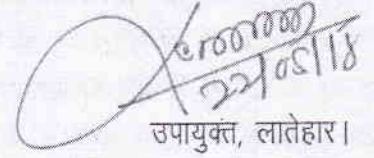 22/05/18
उपायुक्त, लातेहार।